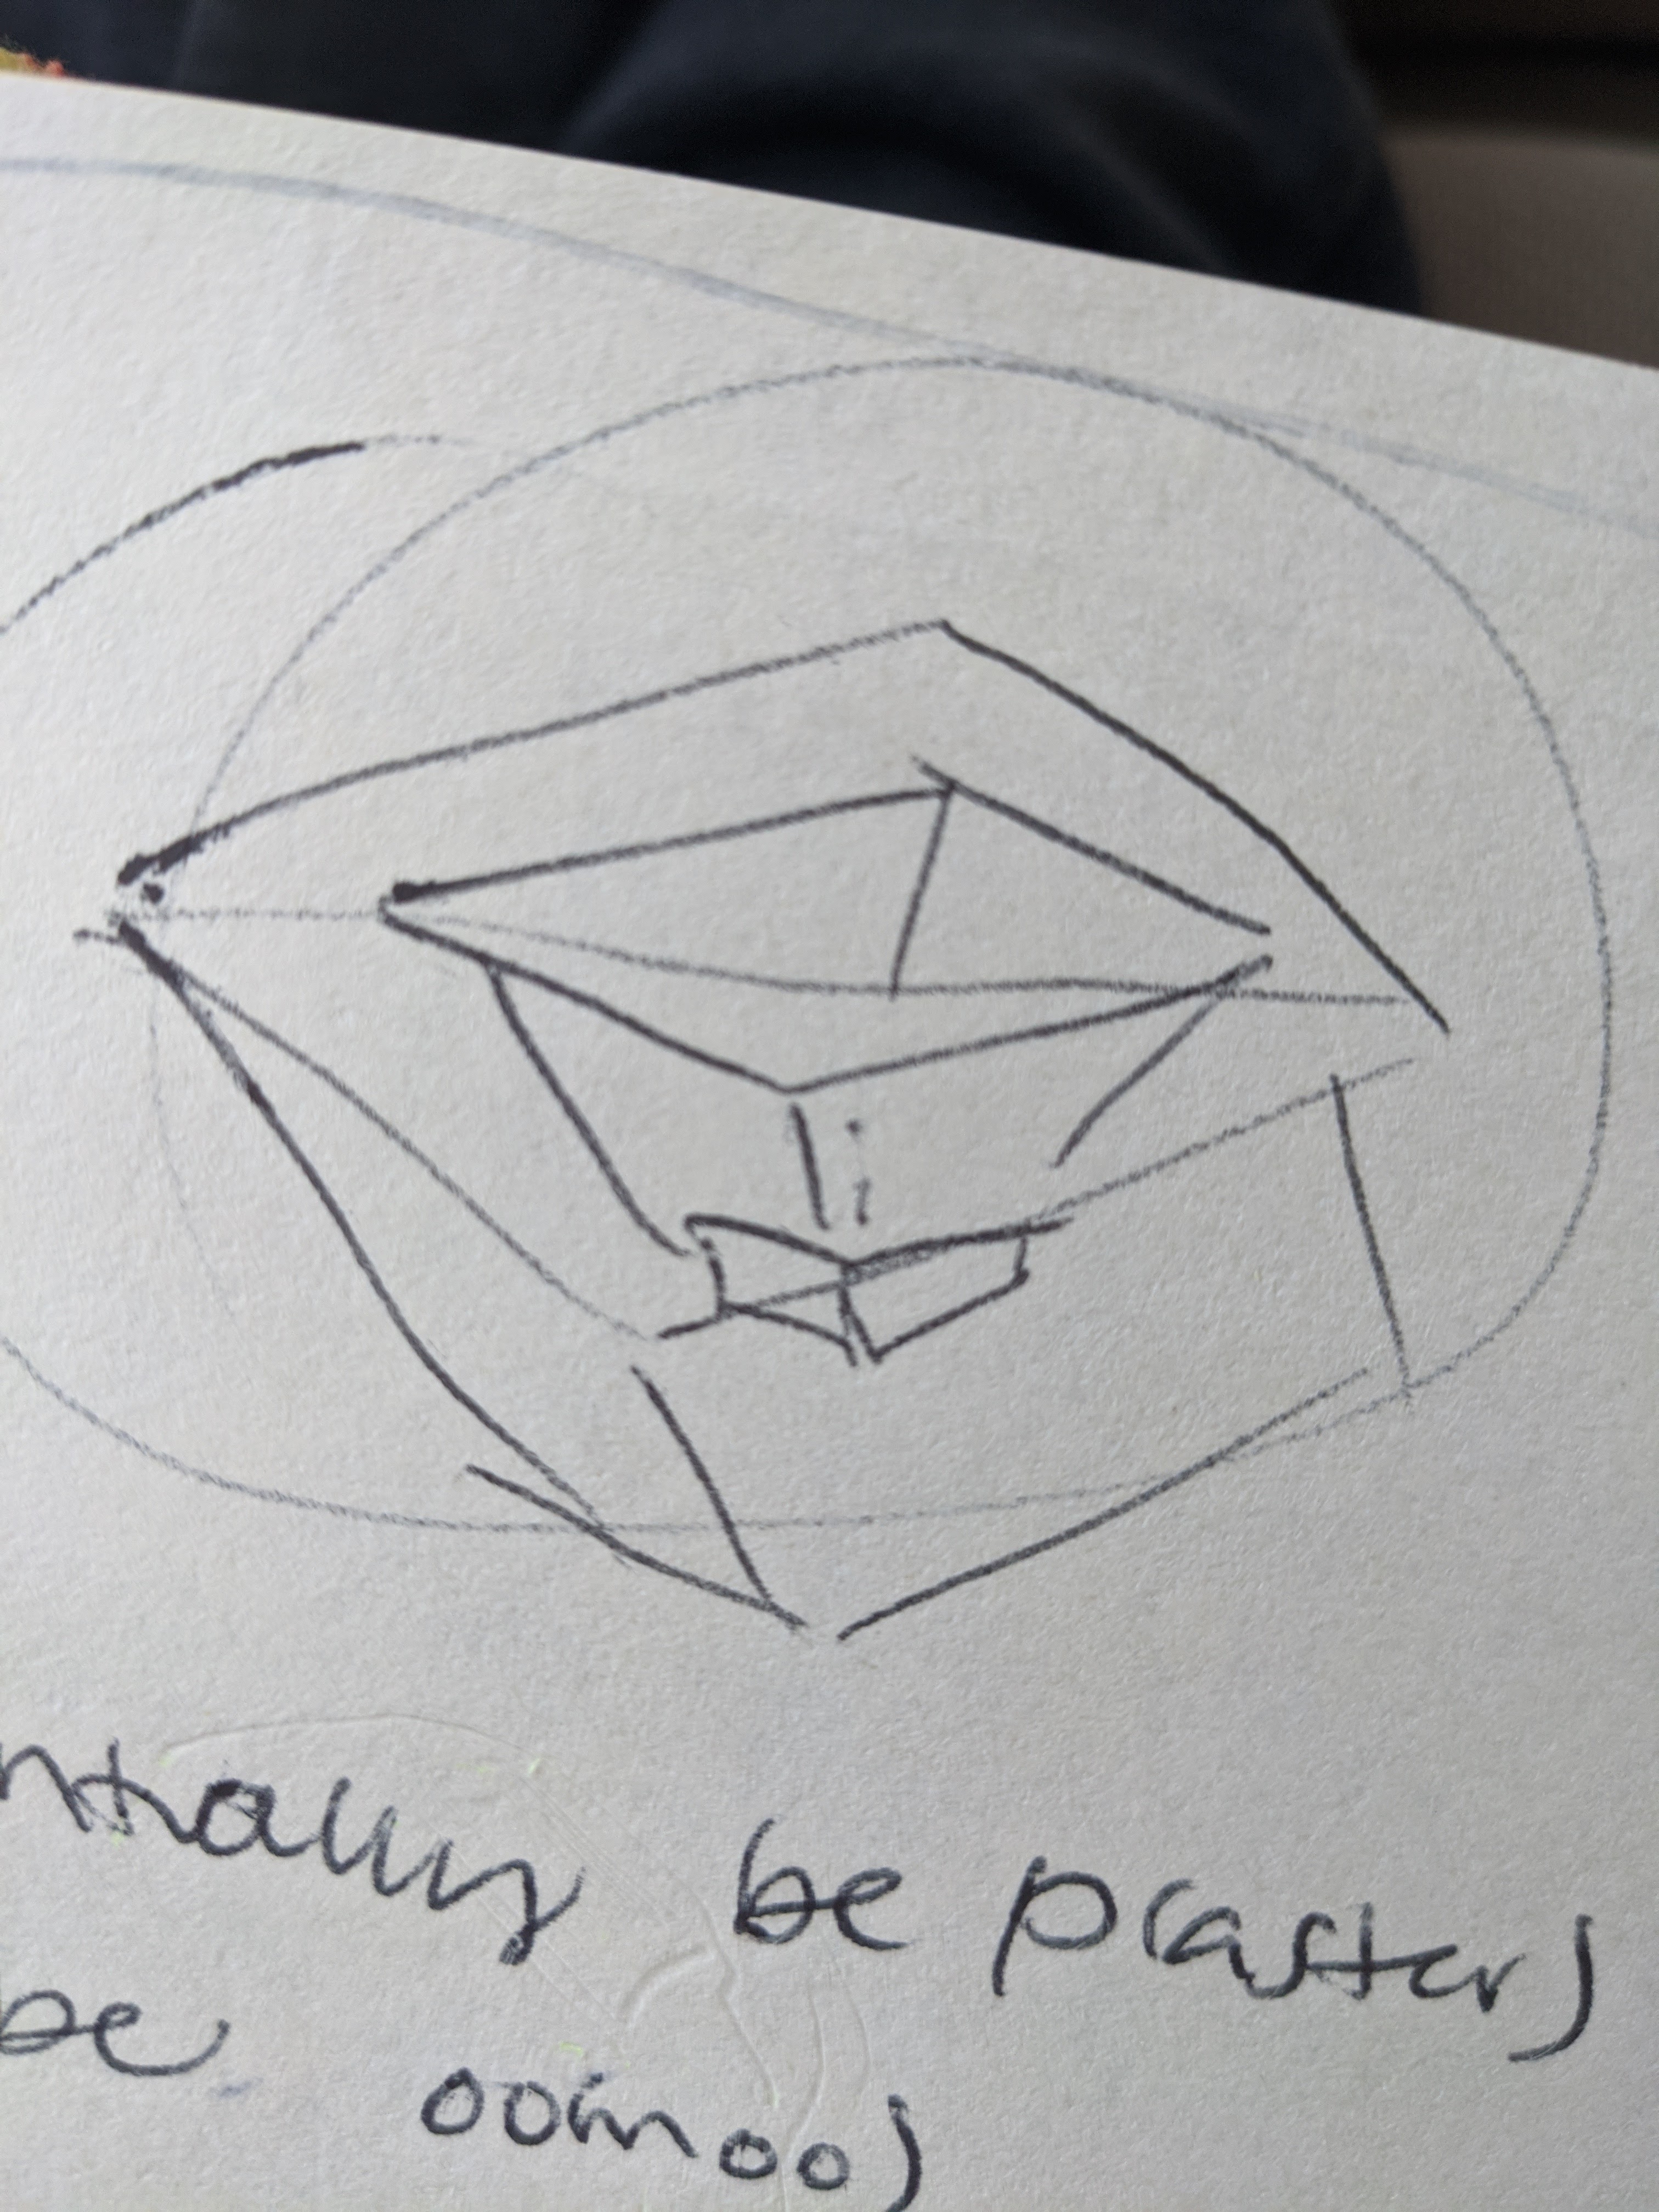 ntially be plaster)
be oomoo)